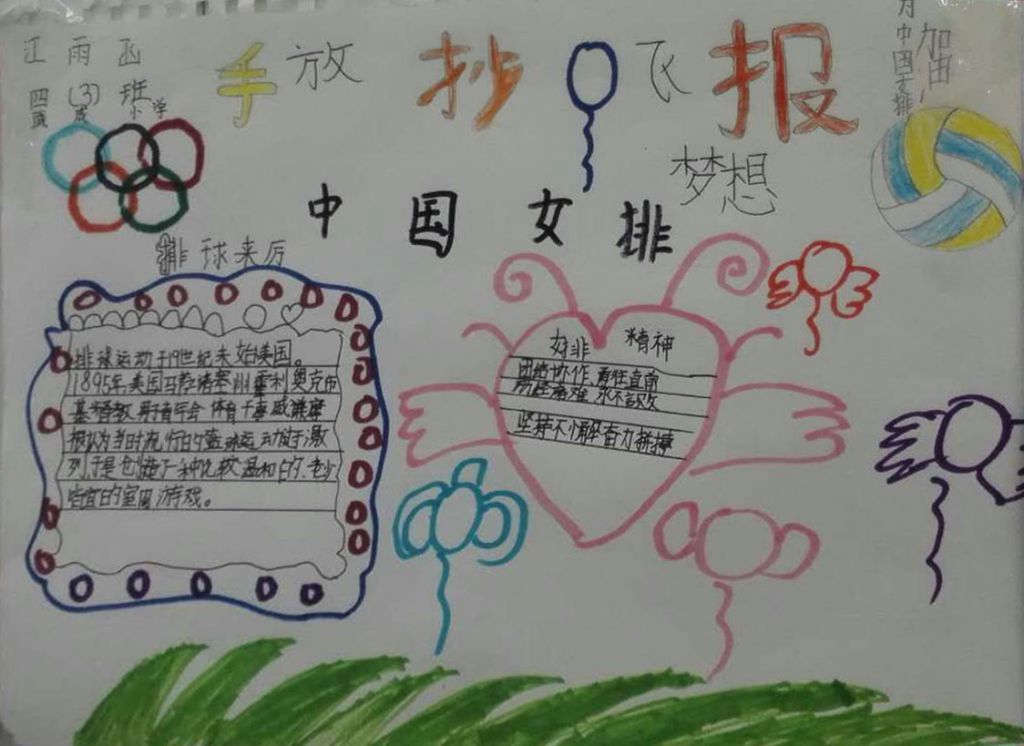 江雨函
四(3)班
小学
手抄报
放飞
梦想
为中国女排
加油!
中国女排
排球来历
排球运动于19世纪末始美国。
1895年美国马萨诸塞州霍利奥克市
基督教男子青年会体育干事威廉摩
根认为当时流行的篮球运动过于激
烈,于是创造了一种比较温和的、老少
皆宜的室内游戏。
女排精神
团结协作,勇往直前
永不言败
坚持不懈奋力拼搏